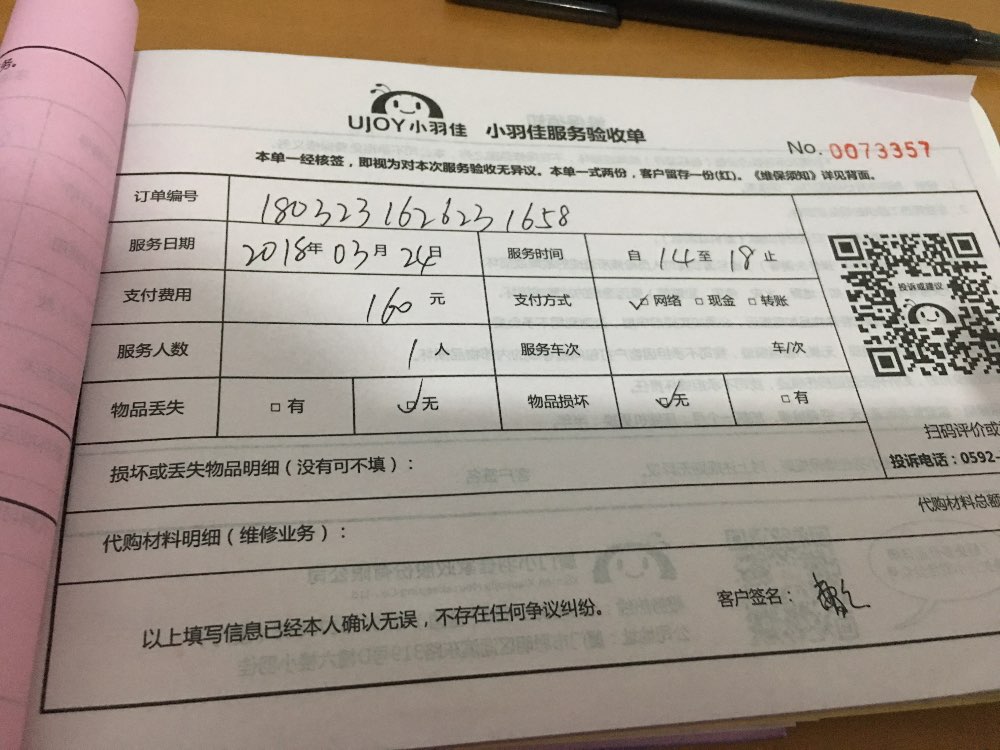 务。
UJOY小羽佳 小羽佳服务验收单
No. 0073357
本单一经核签，即视为对本次服务验收无异议。本单一式两份，客户留存一份(红)。《维保须知》详见背面。
订单编号 180323162623 1658
服务日期 2018年 03月 24日 服务时间 自 14 至 18 止
投诉或建议
支付费用 160 元 支付方式 ☑网络 □现金 □转账
服务人数 1 人 服务车次 车/次
物品丢失 □有 ☑无 物品损坏 ☑无 □有
扫码评价或
损坏或丢失物品明细（没有可不填）：
投诉电话：0592-
代购材料明细（维修业务）： 代购材料总额
以上填写信息已经本人确认无误，不存在任何争议纠纷。 客户签名：